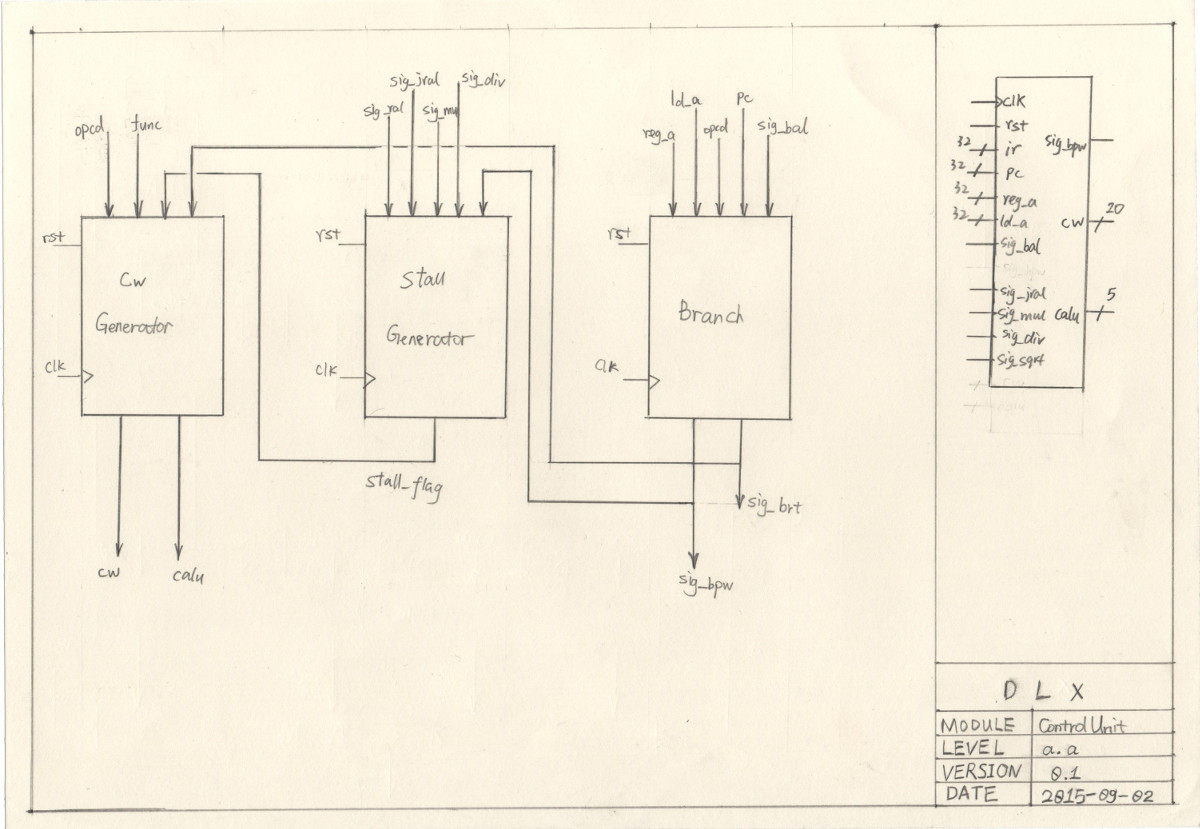 opcd
func
rst
clk
Cw
Generator
cw
calu
sig_jral
sig_div
sig_ral
sig_mu
rst
clk
Stall
Generator
stall_flag
ld_a
pc
reg_a
opcd
sig_bal
rst
clk
Branch
sig_brt
sig_bpw
clk
rst
32
ir
32
pc
32
reg_a
32
ld_a
sig_bal
sig_jral
sig_mul
sig_div
sig_sqrt
sig_bpw
cw
20
calu
5
D L X
MODULE Control Unit
LEVEL a.a
VERSION 0.1
DATE 2015-09-02